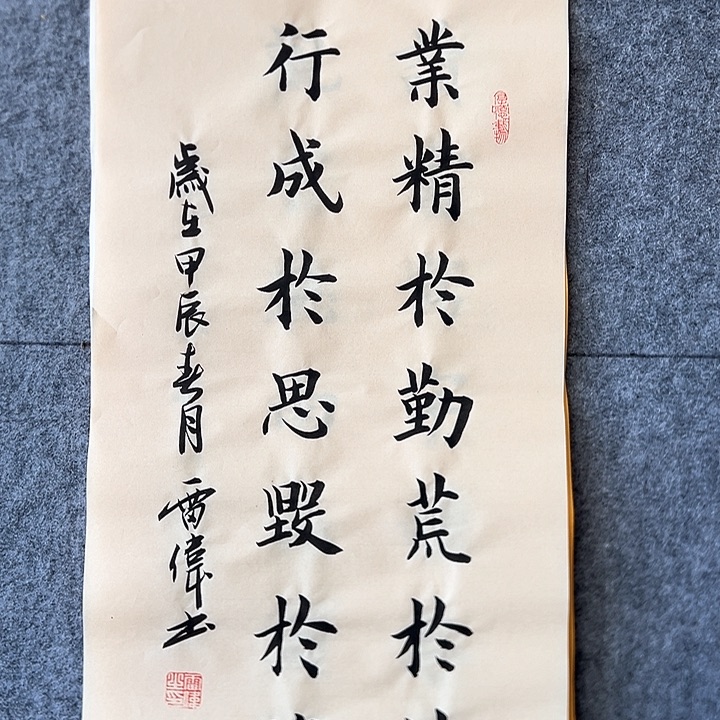 業精於勤荒於
行成於思毀於
歲在甲辰春月雷偉书